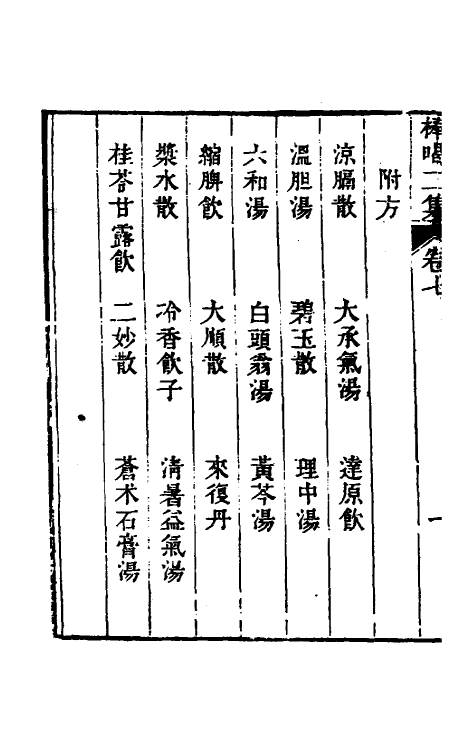 棒喝二集 卷七 一
附方
涼膈散 大承氣湯 達原飲
溫胆湯 碧玉散 理中湯
六和湯 白頭翁湯 黃芩湯
縮脾飲 大順散 來復丹
漿水散 冷香飲子 清暑益氣湯
桂苓甘露飲 二妙散 蒼术石膏湯